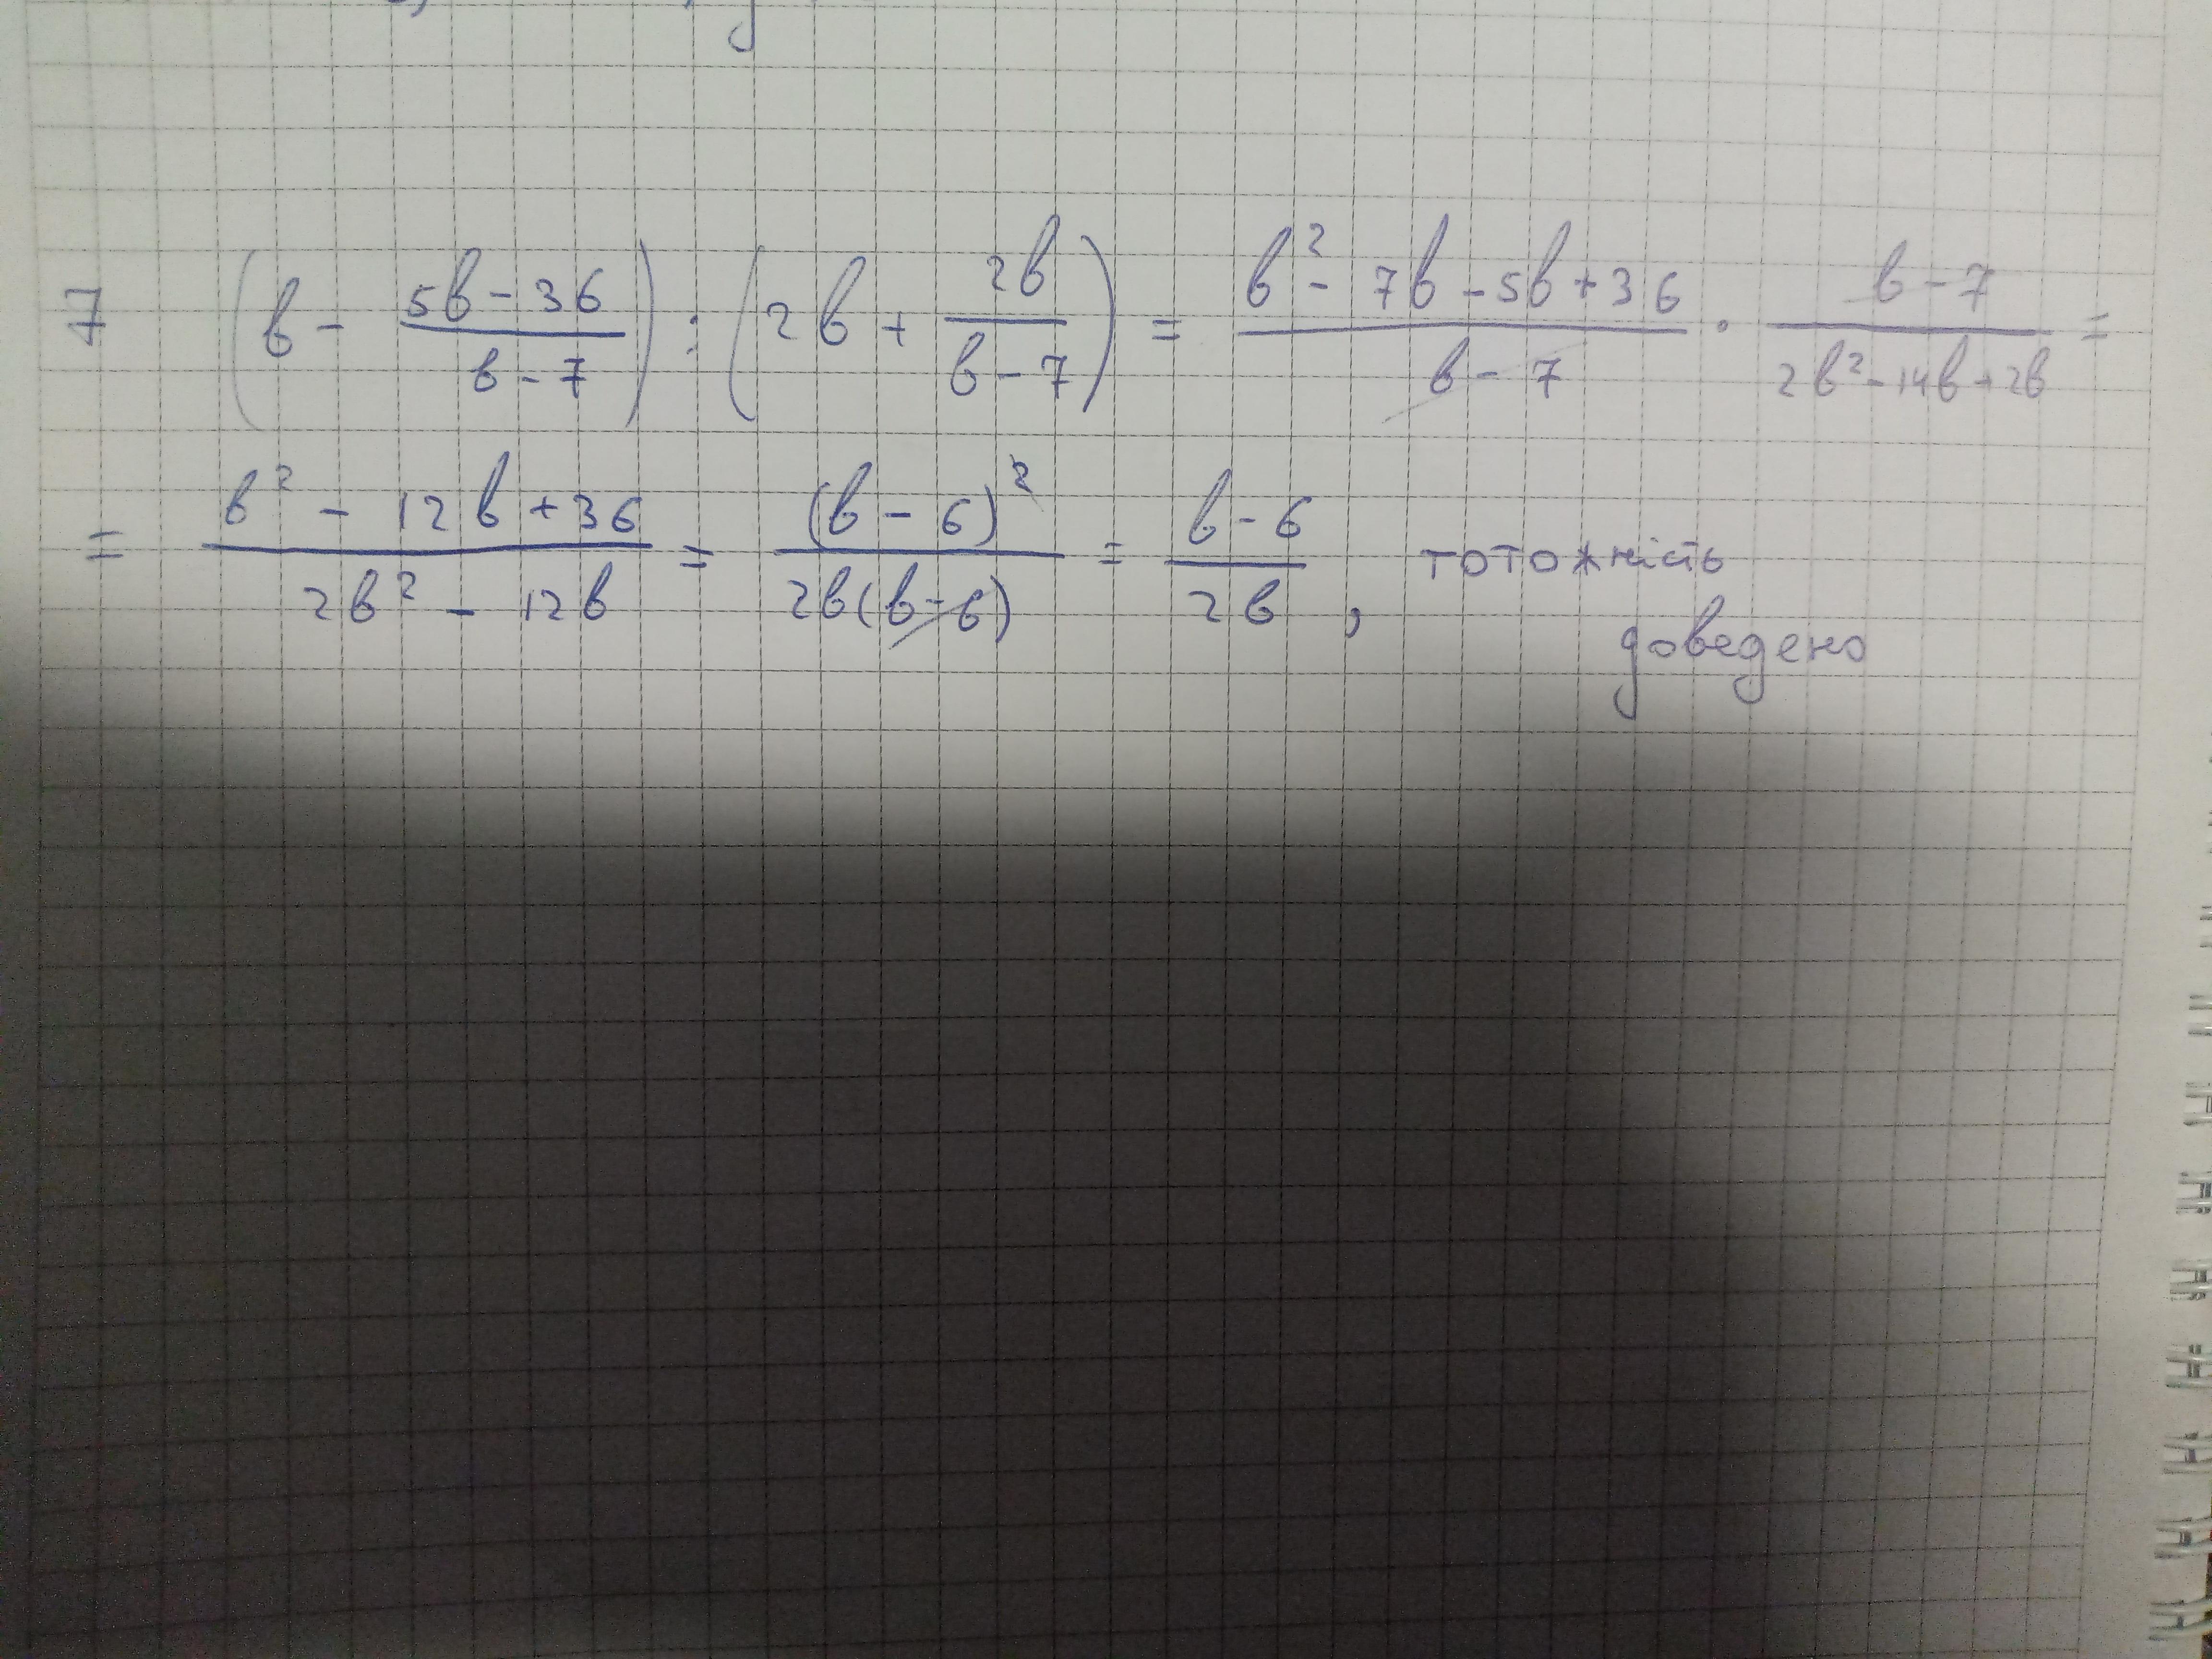 7 (b - \frac{5b-36}{b-7}) : (2b + \frac{2b}{b-7}) = \frac{b^2 - 7b - 5b + 36}{b-7} \cdot \frac{b-7}{2b^2 - 14b + 2b} =
= \frac{b^2 - 12b + 36}{2b^2 - 12b} = \frac{(b-6)^2}{2b(b-6)} = \frac{b-6}{2b} , тотожність
доведено